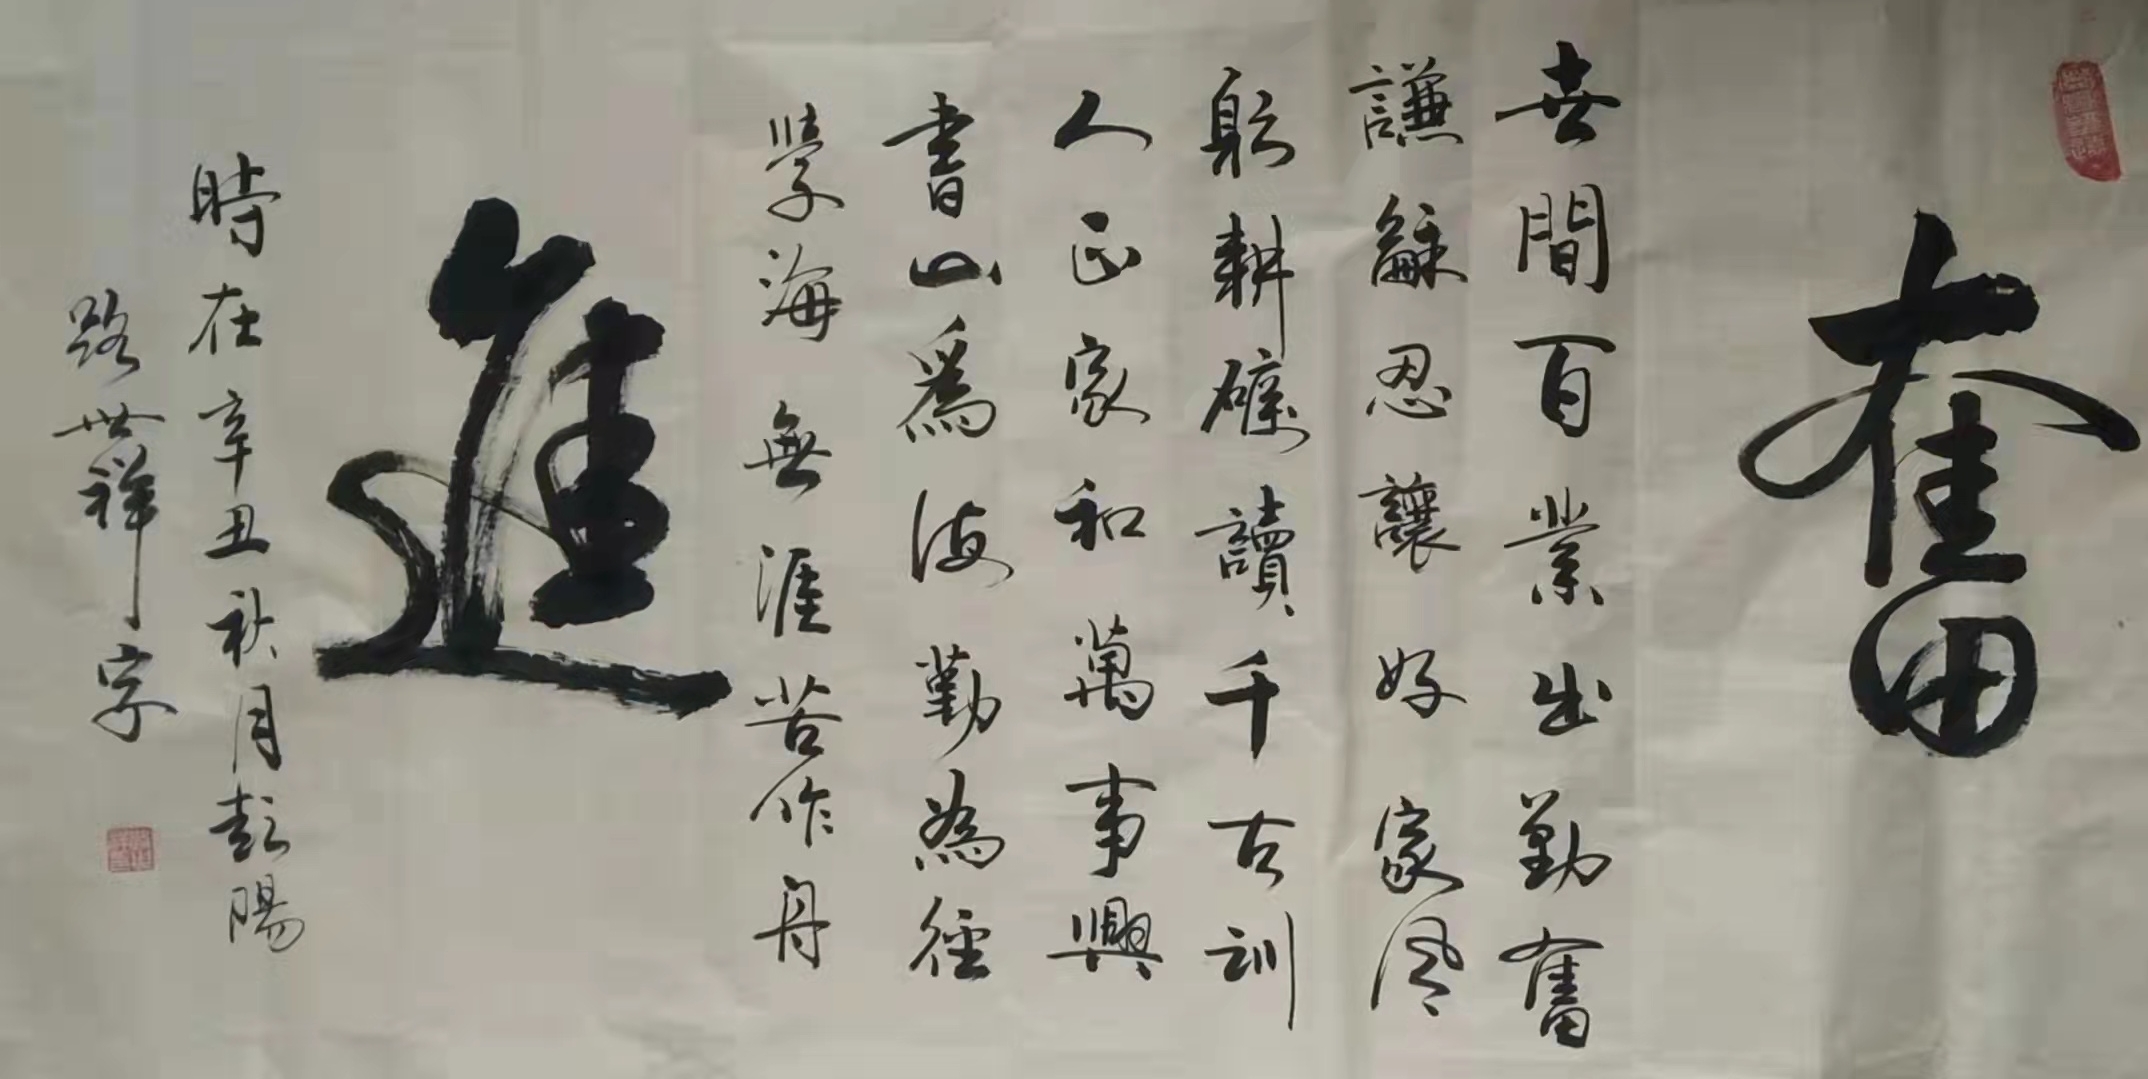 奮
世間百業出勤奮
謙龢忍讓好家風
躬耕讀千古訓
人正家和萬事興
書山爲海勤為徑
學海無涯苦作舟
進
時在辛丑秋月彭陽
路世祥字